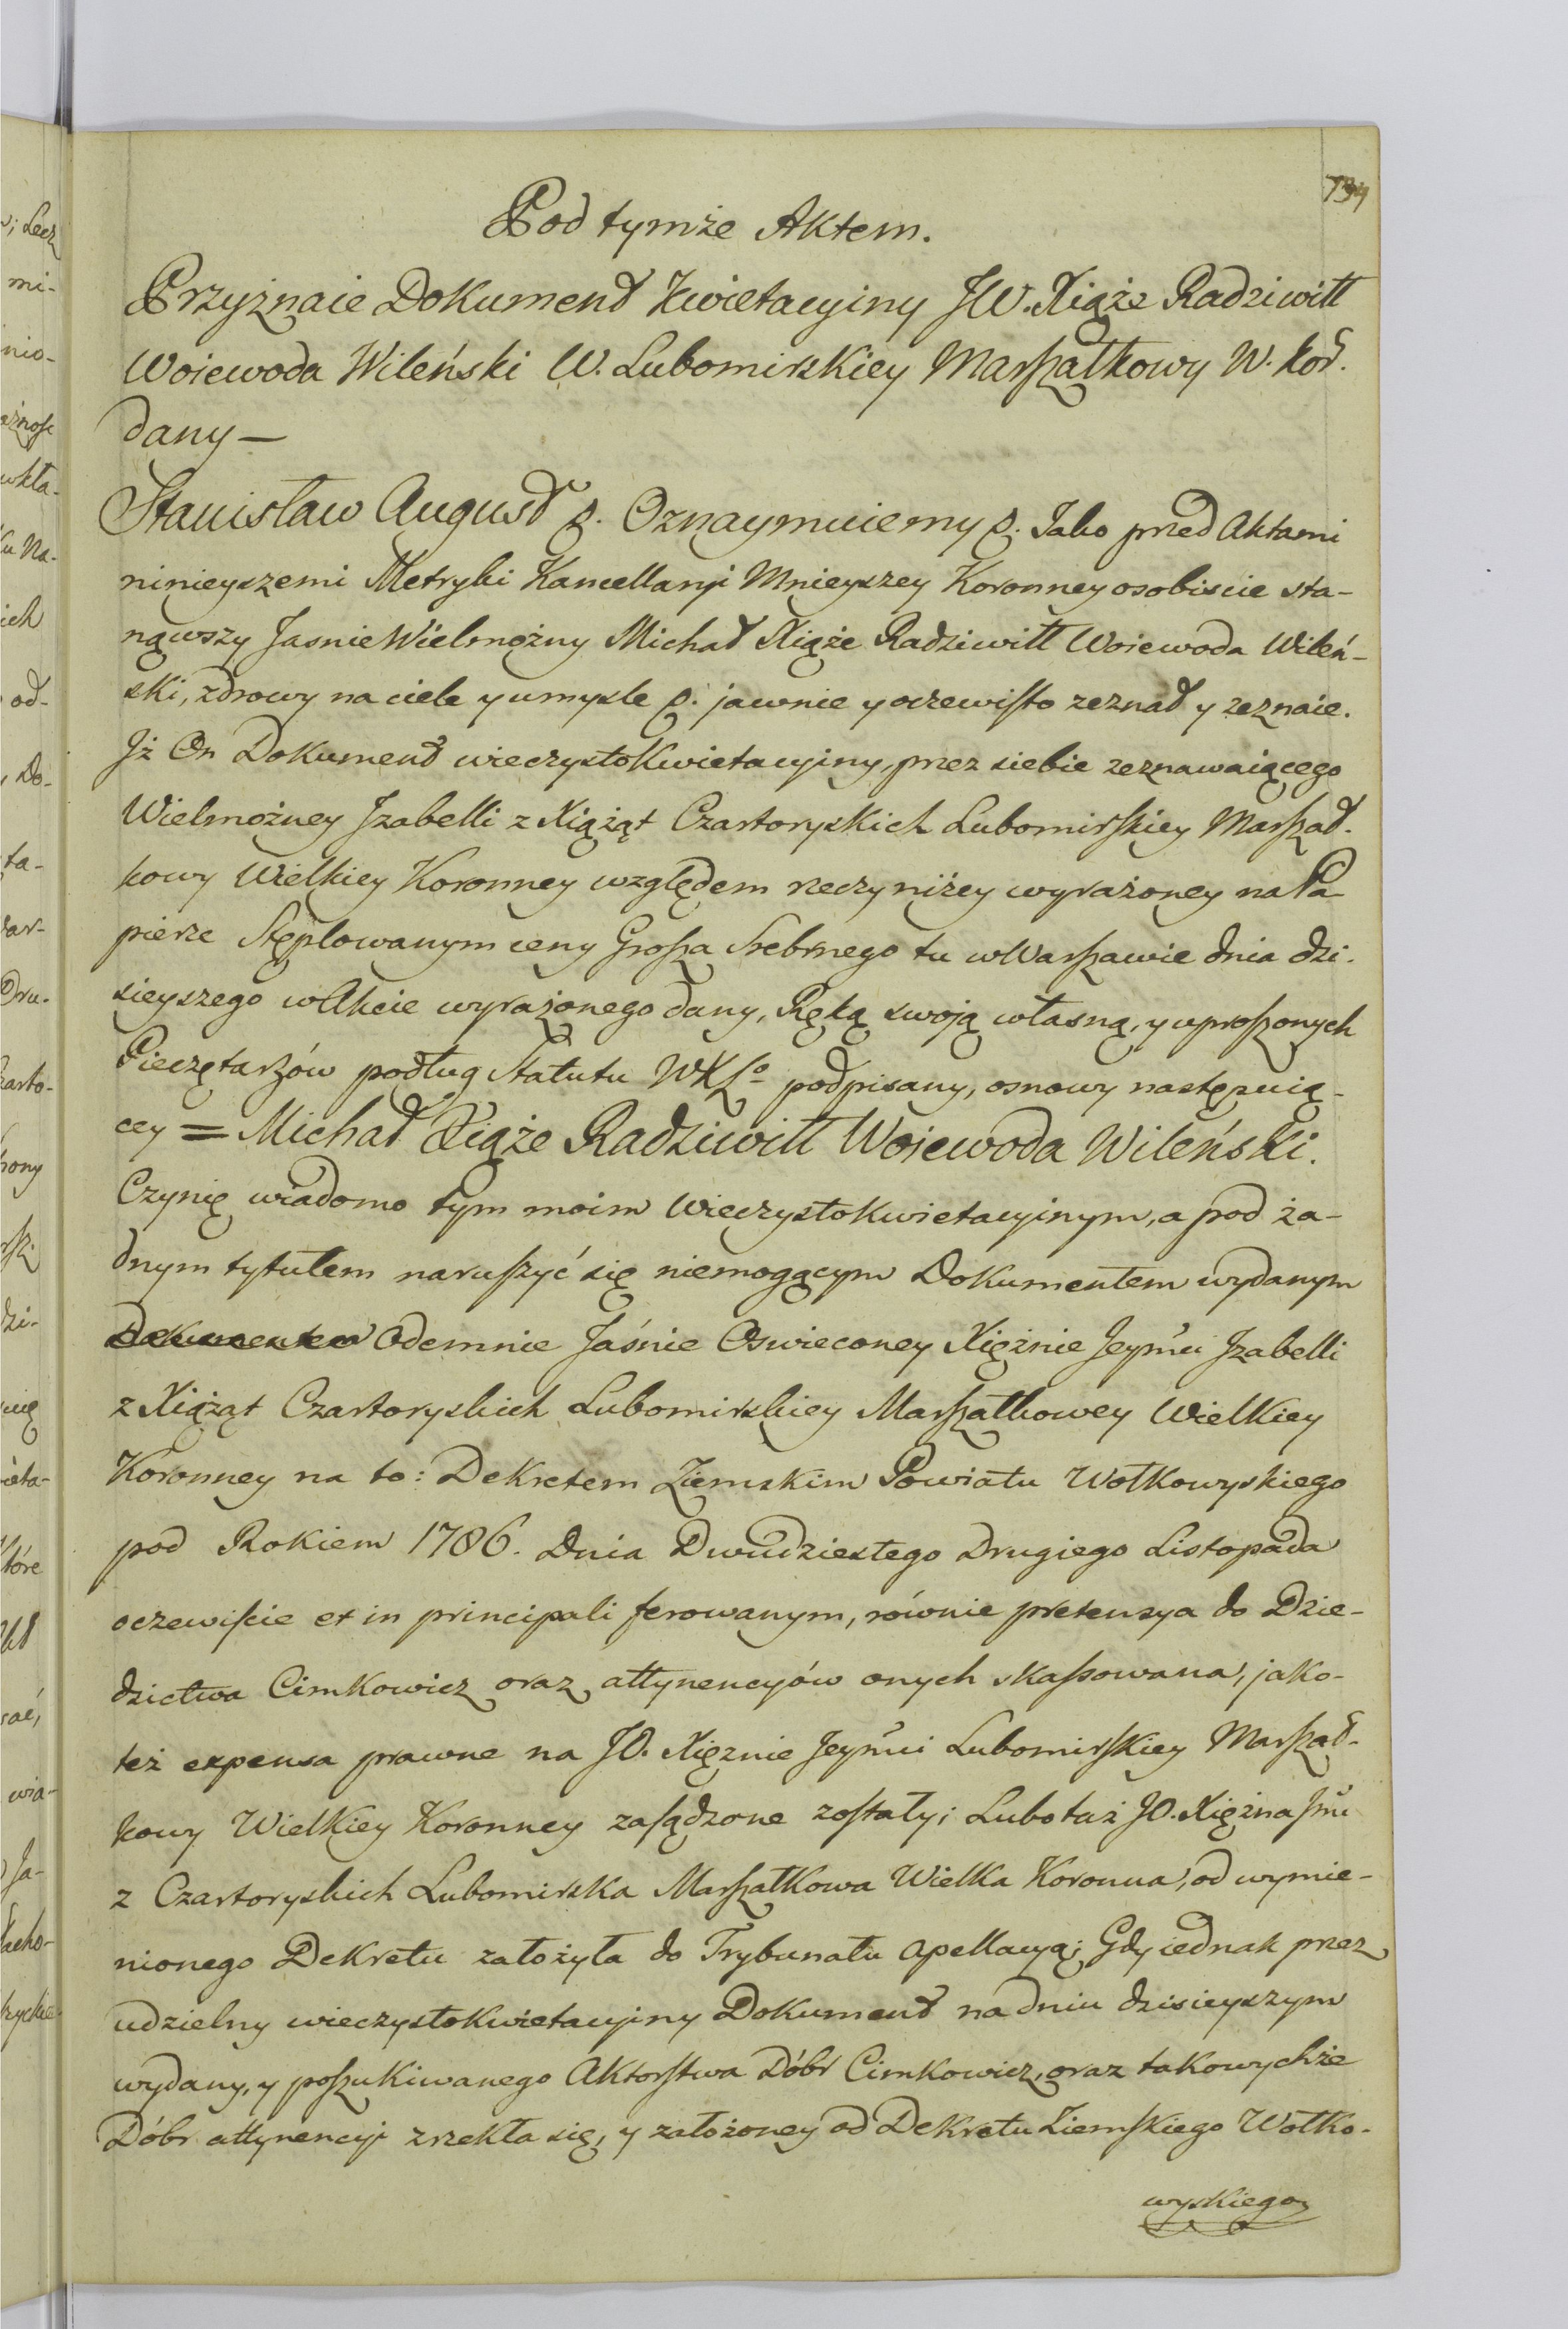 734
Pod tymże Aktem.
Przyznaie Dokument kwietacyiny JW. Xiąże Radziwiłł
Woiewoda Wileński W. Lubomirskiey Marszałkowy W. kor.
dany —
Stanisław August p. Oznaymuiemy p. Jako przed Aktami
ninieyszemi Metryki Kancellaryi Mnieyszey Koronney osobiscie sta-
nąwszy JasnieWielmożny Michał Xiąże Radziwiłł Woiewoda Wileń-
ski, zdrowy na ciele y umysle p. jawnie y oczewisto zeznał y zeznaie.
Jż On Dokument wieczystokwietacyiny, przez siebie zeznawaiącego
Wielmożney Jzabelli z Xiążąt Czartoryskich Lubomirskiey Marszał-
kowy Wielkiey Koronney względem rzeczy niżey wyrażoney na Pa
pierze Stęplowanym ceny Grosza Srebrnego tu w Warszawie dnia dzi-
sieyszego w Akcie wyrażonego dany, Ręką swoją własną, y uproszonych
Pieczętarzów podług Statutu WXLo podpisany, osnowy następuią-
cey = Michał Xiąże Radziwiłł Woiewoda Wileński.
Czynię wiadomo tym moim Wieczystokwietacyinym, a pod ża-
dnym tytułem naruszyć się niemogącym Dokumentem wydanym
Dokumentem Odemnie Jaśnie Oswieconey Xiężnie Jeymci Jzabelli
z Xiążąt Czartoryskich Lubomirskiey Marszałkowey Wielkiey
Koronney na to: Dekretem Ziemskim Powiatu Wołkowyskiego
pod Rokiem 1786. Dnia Dwudziestego Drugiego Listopada
oczewiscie et in principali ferowanym, równie pretensya do Dzie-
dzictwa Cimkowicz oraz attynencyów onych skassowana, jako-
też expensa prawne na JO. Xięznie Jeymci Lubomirskiey Marszał-
kowy Wielkiey Koronney zasądzone zostały; Lubo taż JO. Xiężna Jmci
z Czartoryskich Lubomirska Marszałkowa Wielka Koronna, od wymie-
nionego Dekretu założyła do Trybunału apellacyą; Gdy iednak przez
udzielny wieczystokwietacyiny Dokument na dniu dzisieyszym
wydany, y poszukiwanego Aktorstwa Dóbr Cimkowicz, oraz takowychże
Dóbr attynencyi zrzekła się, y założoney od Dekretu Ziemskiego Wołko-
wyskiego